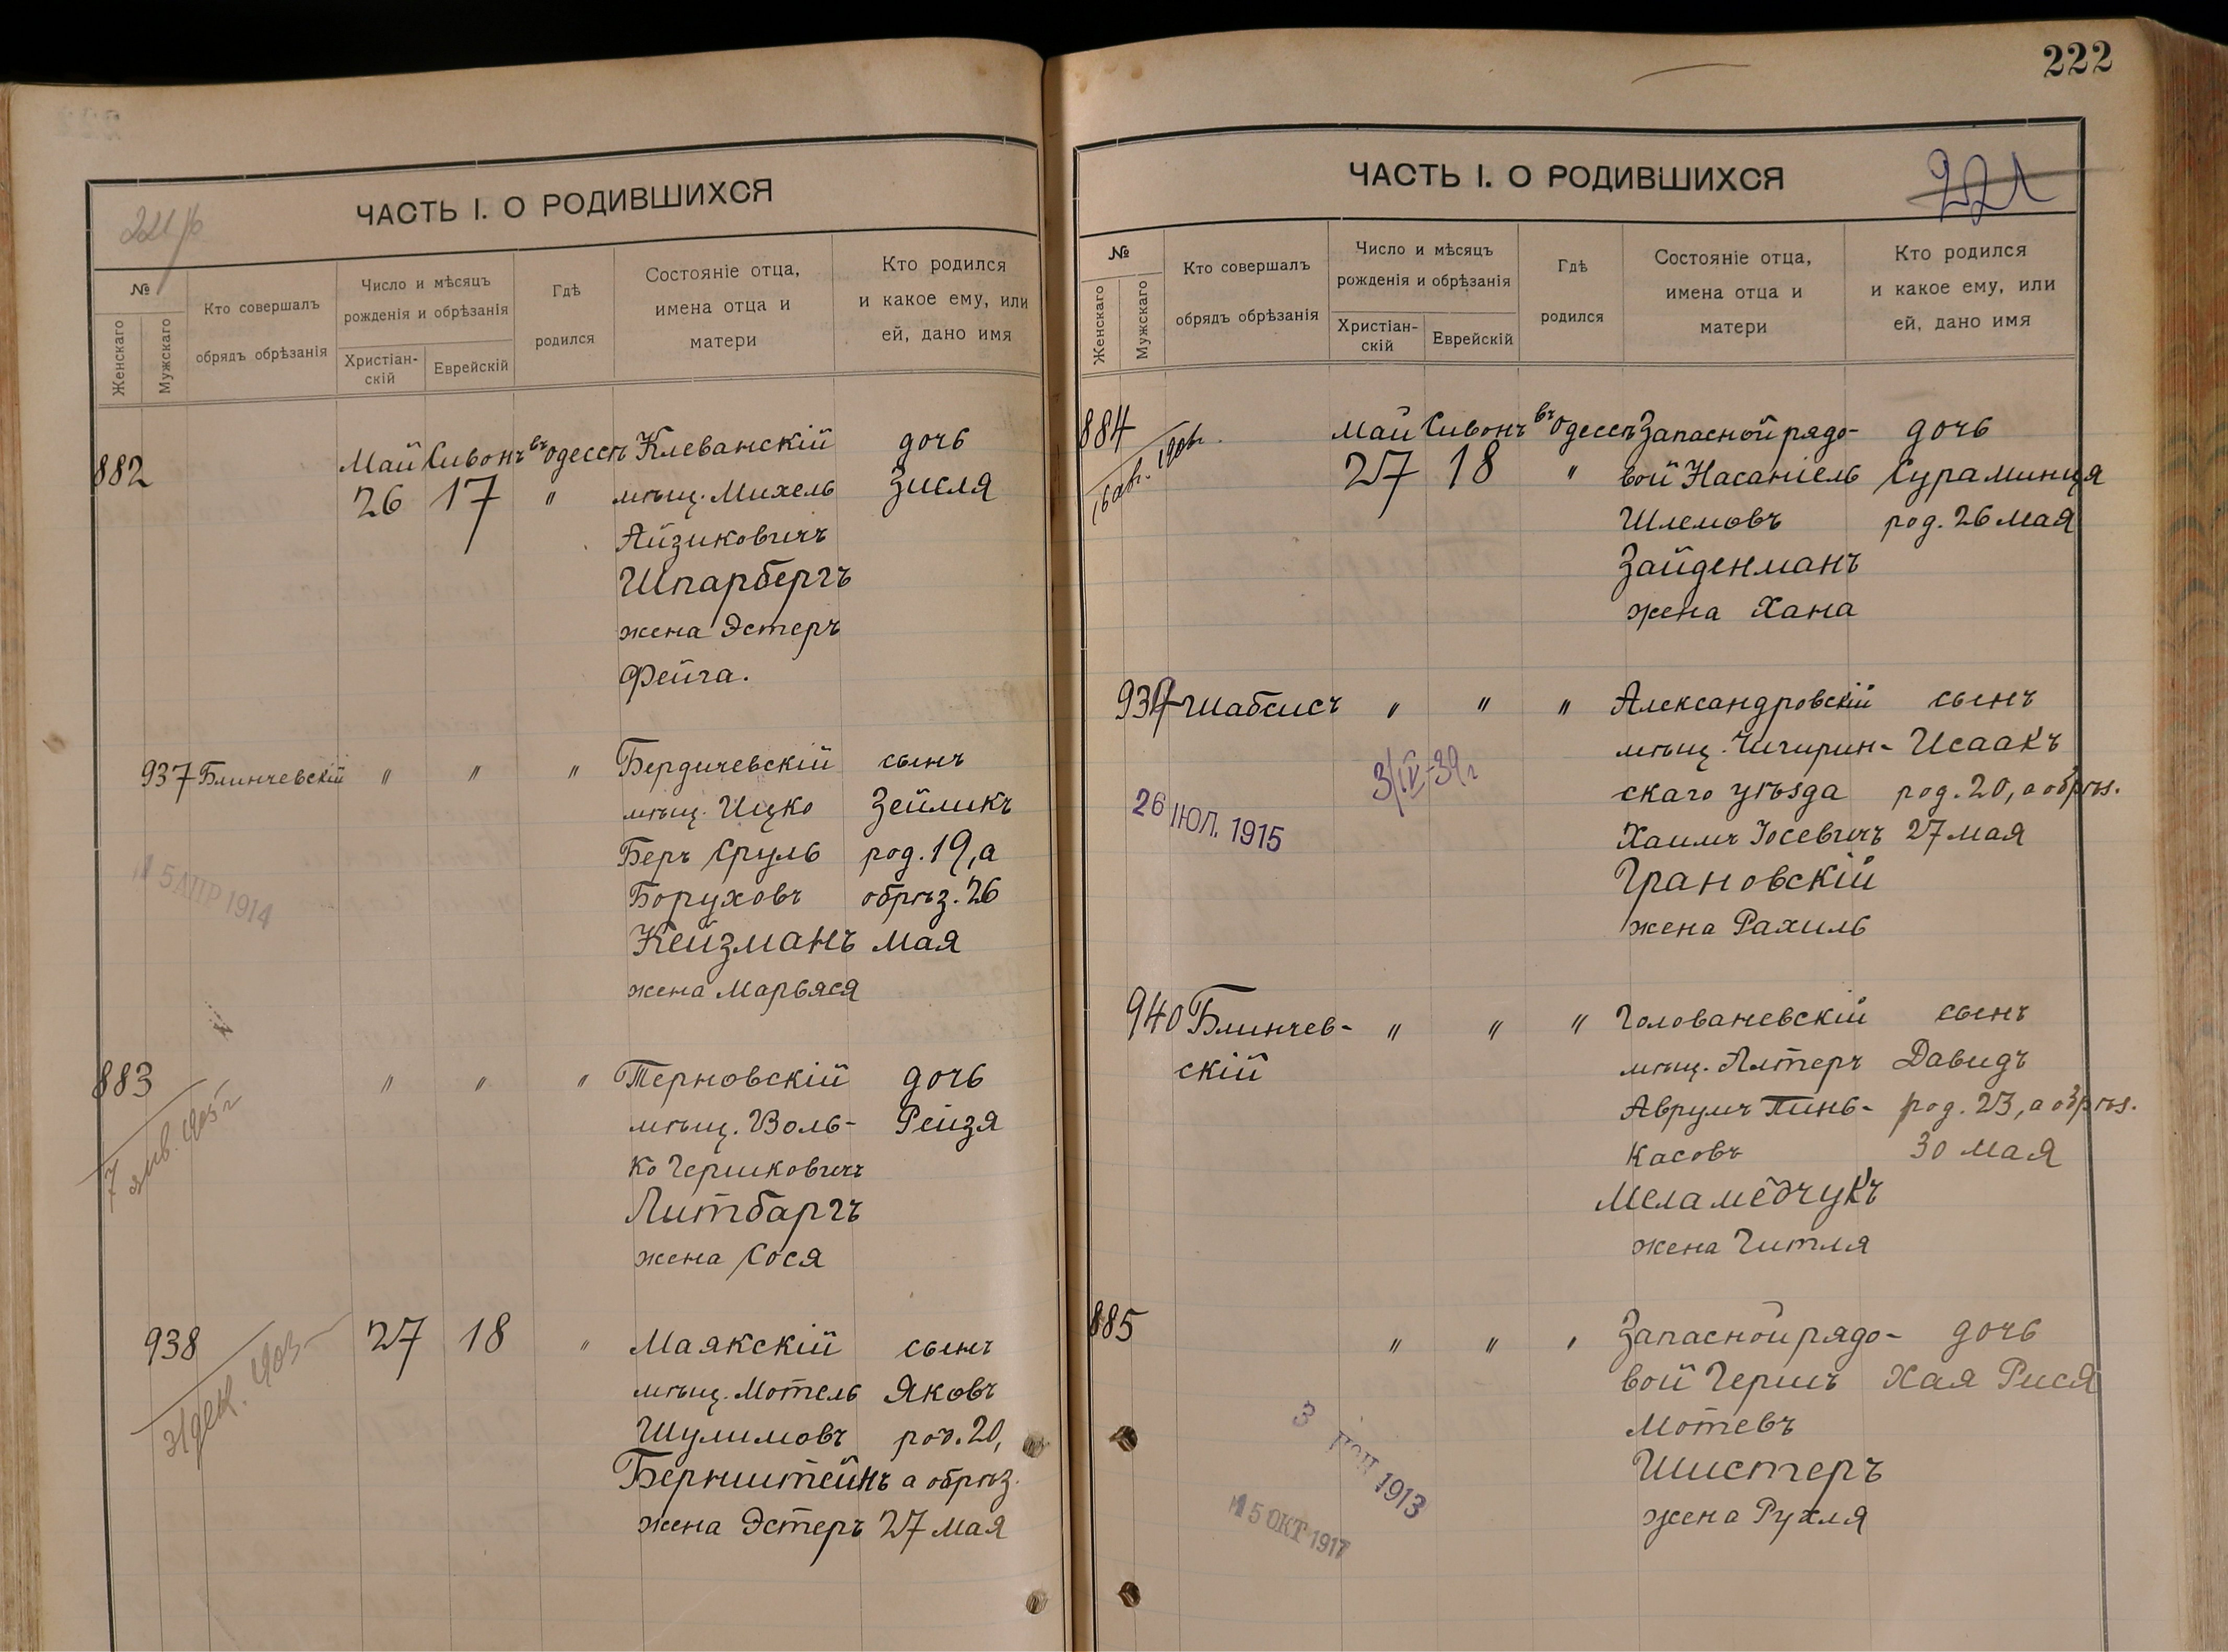 222
ЧАСТЬ I. О РОДИВШИХСЯ
№
Женскаго
Мужскаго
Кто совершалъ
обрядъ обрѣзанія
Число и мѣсяцъ
рожденія и обрѣзанія
Христіан-
скій
Еврейскій
Гдѣ
родился
Состояніе отца,
имена отца и
матери
Кто родился
и какое ему, или
ей, дано имя
882
Май Сивонъ въ Одессѣ Клеванскій дочь
26 17 " мѣщ. Михель Зисля
Айзиковичъ
Шпарбергъ
жена Эстеръ
Фейга.
937 Блинчевскій " " " Бердичевскій сынъ
мѣщ. Ицко Зейликъ
Беръ Сруль род. 19, а
Боруховъ обрѣз. 26
Кейзманъ мая
жена Марьяся
15 АПР 1914
883 " " " Терновскій дочь
мѣщ. Воль- Рейзя
ко Гершковичъ
Литбаргъ
жена Сося
7 янв. 1905 г
938 27 18 " Маякскій сынъ
мѣщ. Мотель Яковъ
Шулимовъ род. 20,
Бернштейнъ а обрѣз.
жена Эстеръ 27 мая
31 дек. 1903
ЧАСТЬ I. О РОДИВШИХСЯ
221
№
Женскаго
Мужскаго
Кто совершалъ
обрядъ обрѣзанія
Число и мѣсяцъ
рожденія и обрѣзанія
Христіан-
скій
Еврейскій
Гдѣ
родился
Состояніе отца,
имена отца и
матери
Кто родился
и какое ему, или
ей, дано имя
884 Май Сивонъ въ Одессѣ Запасной рядо- дочь
27 18 " вой Насаніель Сура Минця
Шлемовъ род. 26 мая
Зайденманъ
жена Хана
939 Шабсисъ " " " Александровскій сынъ
мѣщ. Чигирин- Исаакъ
скаго уѣзда род. 20, а обрѣз.
Хаимъ Іосевичъ 27 мая
Грановскій
жена Рахиль
3/IV-39 г
26 ІЮЛ. 1915
940 Блинчев- " " " Голованевскій сынъ
скій мѣщ. Алтеръ Давидъ
Аврумъ Пинь- род. 23, а обрѣз.
касовъ 30 мая
Меламедчукъ
жена Гитля
885 " " " Запасной рядо- дочь
вой Гершъ Хая Рися
Мотевъ
Шистеръ
жена Рухля
1913
15 ОКТ 1917